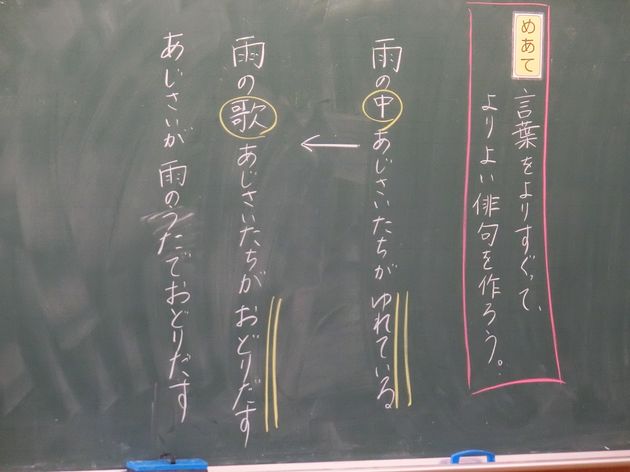 めあて
言葉をよりすぐって、
よりよい俳句を作ろう。
雨の中あじさいたちがゆれている
雨の歌あじさいたちがおどりだす
あじさいが雨のうたでおどりだす